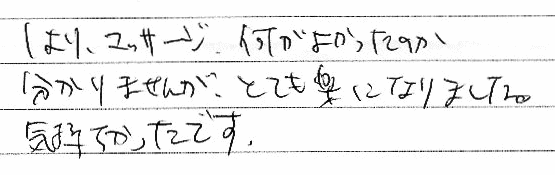 はり、マッサージ、何がよかったのか
分かりませんが、とても楽になりました。
気持ちよかったです。